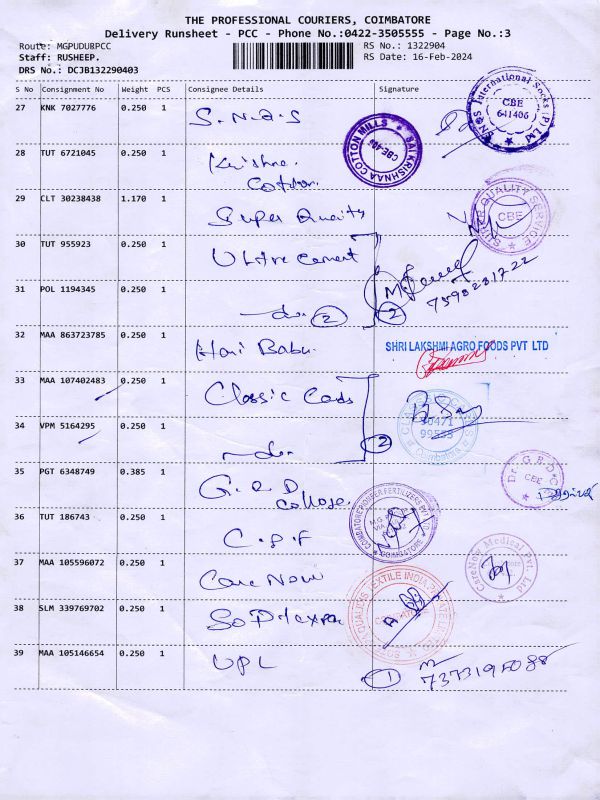 THE PROFESSIONAL COURIERS, COIMBATORE
Delivery Runsheet - PCC - Phone No.:0422-3505555 - Page No.:3
Route: MGPUDU8PCC
RS No.: 1322904
Staff: RUSHEEP.
RS Date: 16-Feb-2024
DRS No.: DCJB132290403
S No Consignment No Weight PCS Consignee Details Signature
27 KNK 7027776 0.250 1 S.N.Q.S
SNQS International Socks (P) Ltd CBE 641406
28 TUT 6721045 0.250 1 Krishna
Cotton.
SAI KRISHNAA COTTON MILLS CBE-
29 CLT 30238438 1.170 1 Super Quality
SUPER QUALITY SERVICE CBE
30 TUT 955923 0.250 1 Ultra Cement
31 POL 1194345 0.250 1 -do- 2
2
7598231722
32 MAA 863723785 0.250 1 Hari Babu.
SHRI LAKSHMI AGRO FOODS PVT LTD
33 MAA 107402483 0.250 1 Classic Cards
34 VPM 5164295 0.250 1 -do-
2
CLASSIC CARDS Coimbatore
35 PGT 6348749 0.385 1 G.R.D
College.
Dr. G.R.D.C CBE
36 TUT 186743 0.250 1 C.P.F
COIMBATORE PIONEER FERTILIZERS PVT LTD COIMBATORE
37 MAA 105596072 0.250 1 Care Now
CareNow Medical Pvt. Ltd
38 SLM 339769702 0.250 1
TEXTILE INDIA PRIVATE
39 MAA 105146654 0.250 1 UPL
1